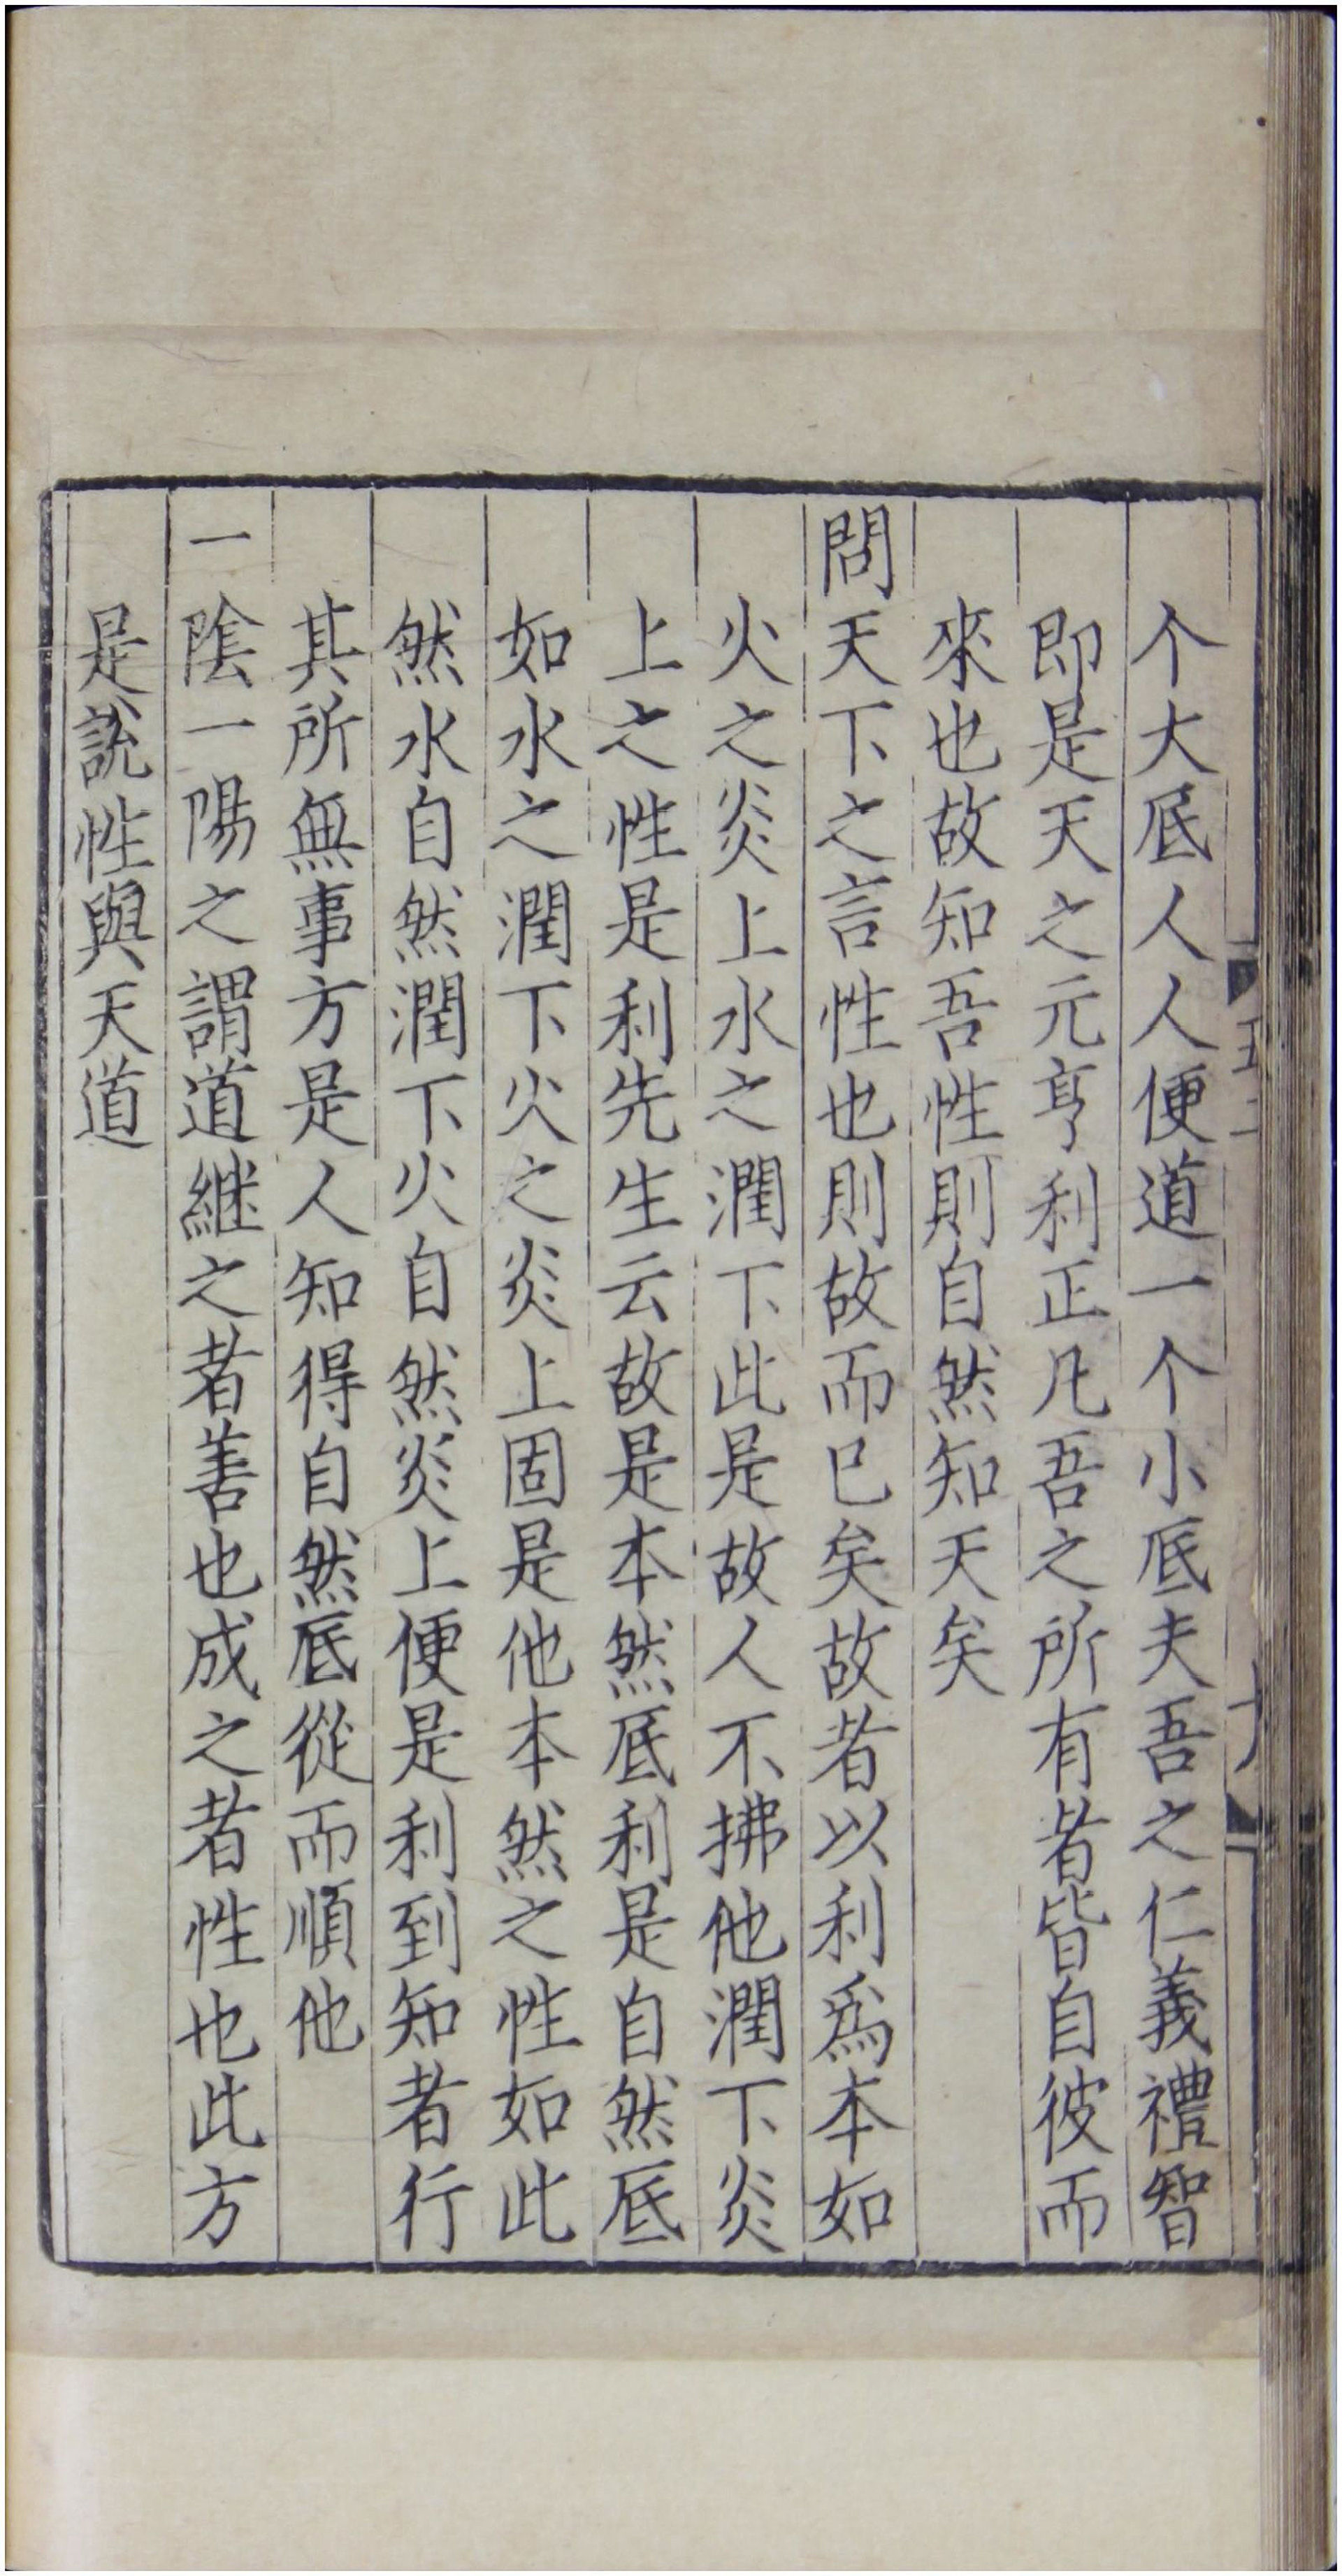 个大底人人人便道一个小底夫吾之仁義禮智
即是天之元亨利正凡吾之所有者皆自彼而
來也故知吾性則自然知天矣
問天下之言性也則故而已矣故者以利爲本如
火之炎上水之潤下此是故人不拂他潤下炎
上之性是利先生云故是本然底利是自然底
如水之潤下火之炎上固是他本然之性如此
然水自然潤下火自然炎上便是利到知者行
其所無事方是人知得自然底從而順他
一陰一陽之謂道継之者善也成之者性也此方
是說性與天道